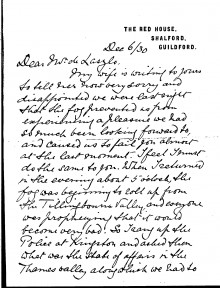 THE RED HOUSE,
SHALFORD,
GUILDFORD.
Dec 6/30
Dear Mr de Laszlo.
My wife is writing to yours
to tell her how very sorry and
disappointed we were last night
that the fog prevented us from
experiencing a pleasure we had
so much been looking forward to,
and caused us to fail you almost
at the last moment. I feel I must
do the same to you. When I returned
in the evening about 5 o'clock, the
fog was beginning to roll up from
the Tillingbourne Valley and everyone
was prophesying that it would
become very bad. So I rang up the
Police at Kingston and asked them
what was the state of affairs in the
Thames valley along which we had to